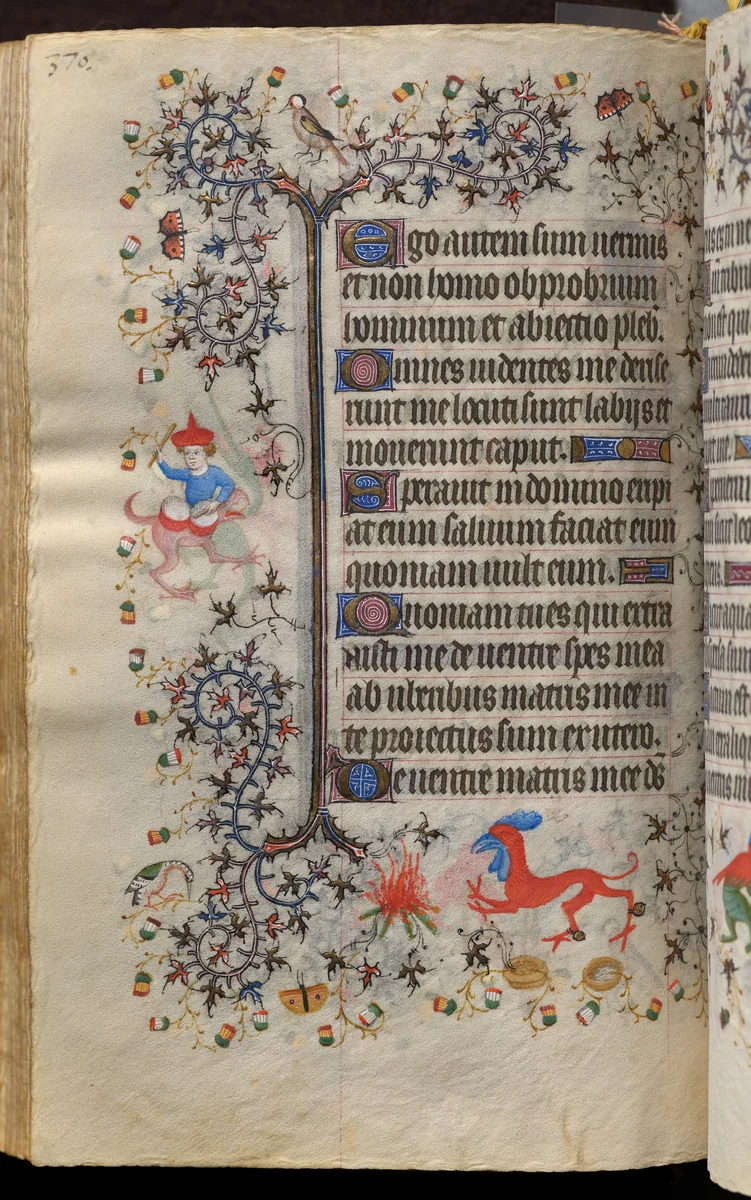 370.
Ego autem sum uermis
et non homo obprobrium
hominum et abiectio pleb.
Omnes uidentes me derise
runt me locuti sunt labijs et
mouerunt caput.
Sperauit in domino eripi
at eum saluum faciat eum
quoniam uult eum.
Quoniam tu es qui extra
xisti me de uentre spes mea
ab uberibus matris mee in
te proiectus sum ex utero.
De uentre matris mee ds